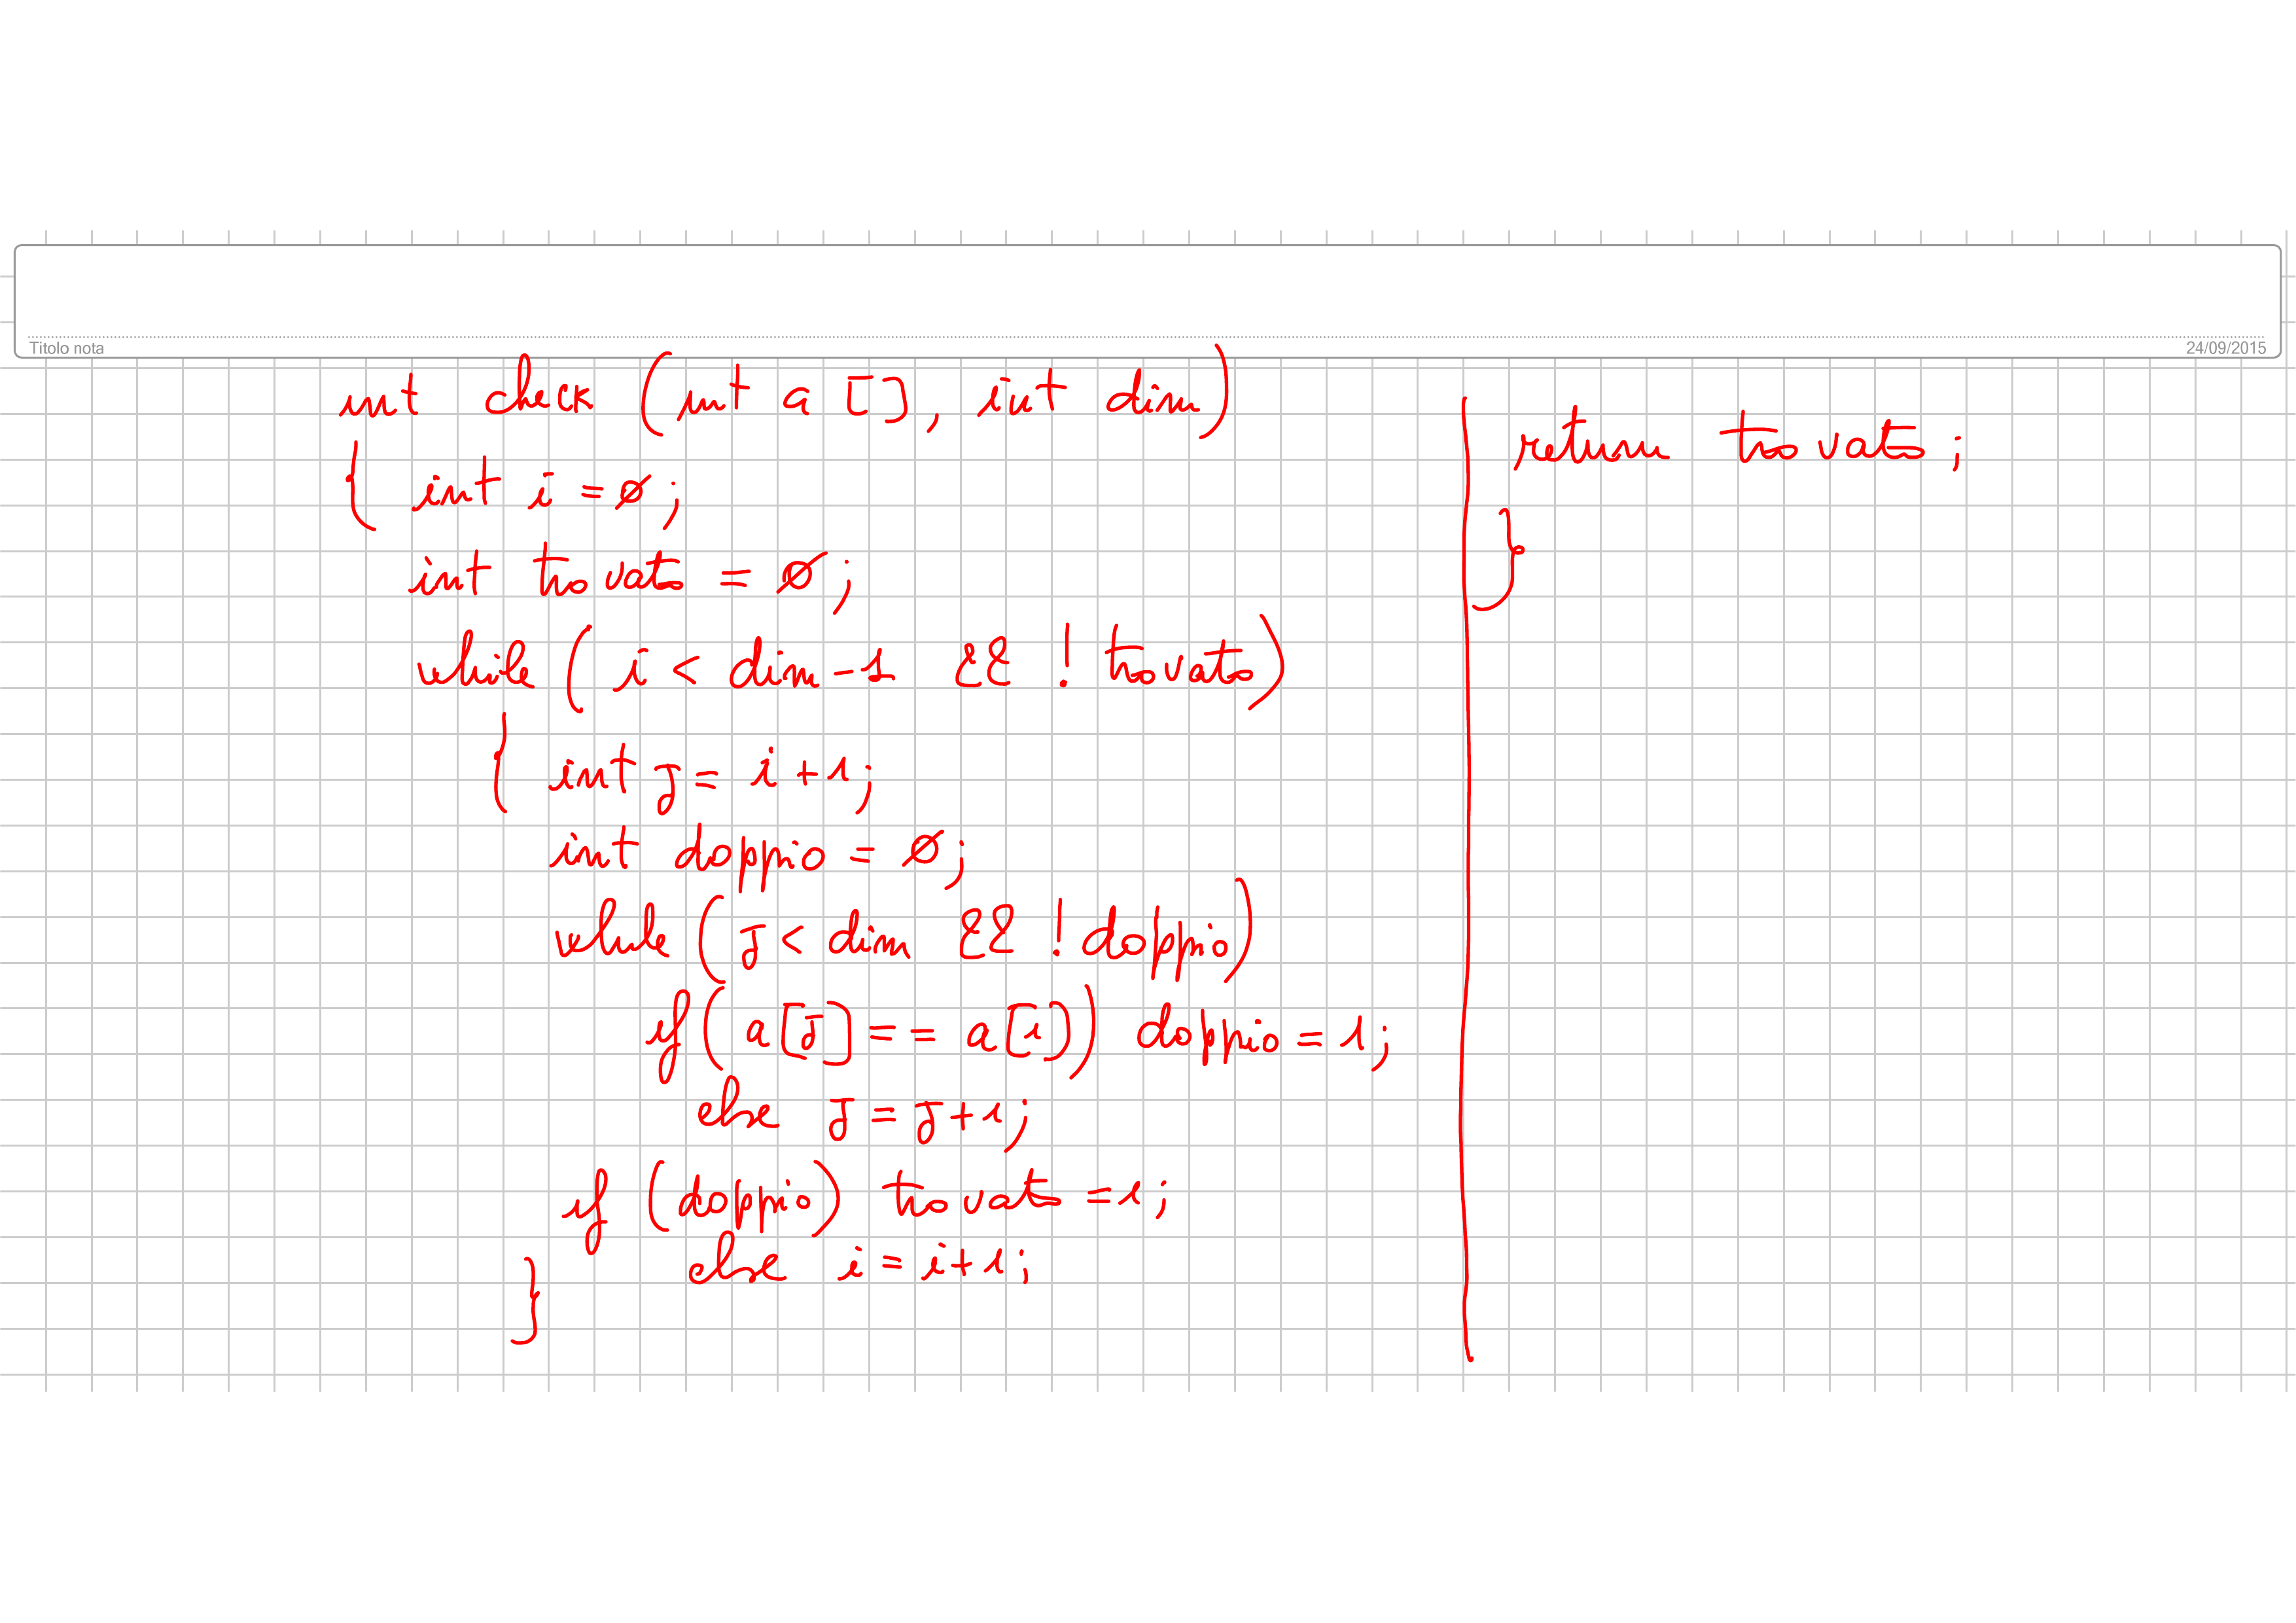 Titolo nota
24/09/2015
int check (int a [], int dim)
{ int i = 0;
int trovato = 0;
while ( i < dim-1 && ! trovato)
{ int j = i+1;
int doppio = 0;
while (j < dim && ! doppio)
if ( a[j] == a[i]) doppio = 1;
else j = j+1;
if (doppio) trovato = 1;
else i = i+1;
}
return trovato;
}